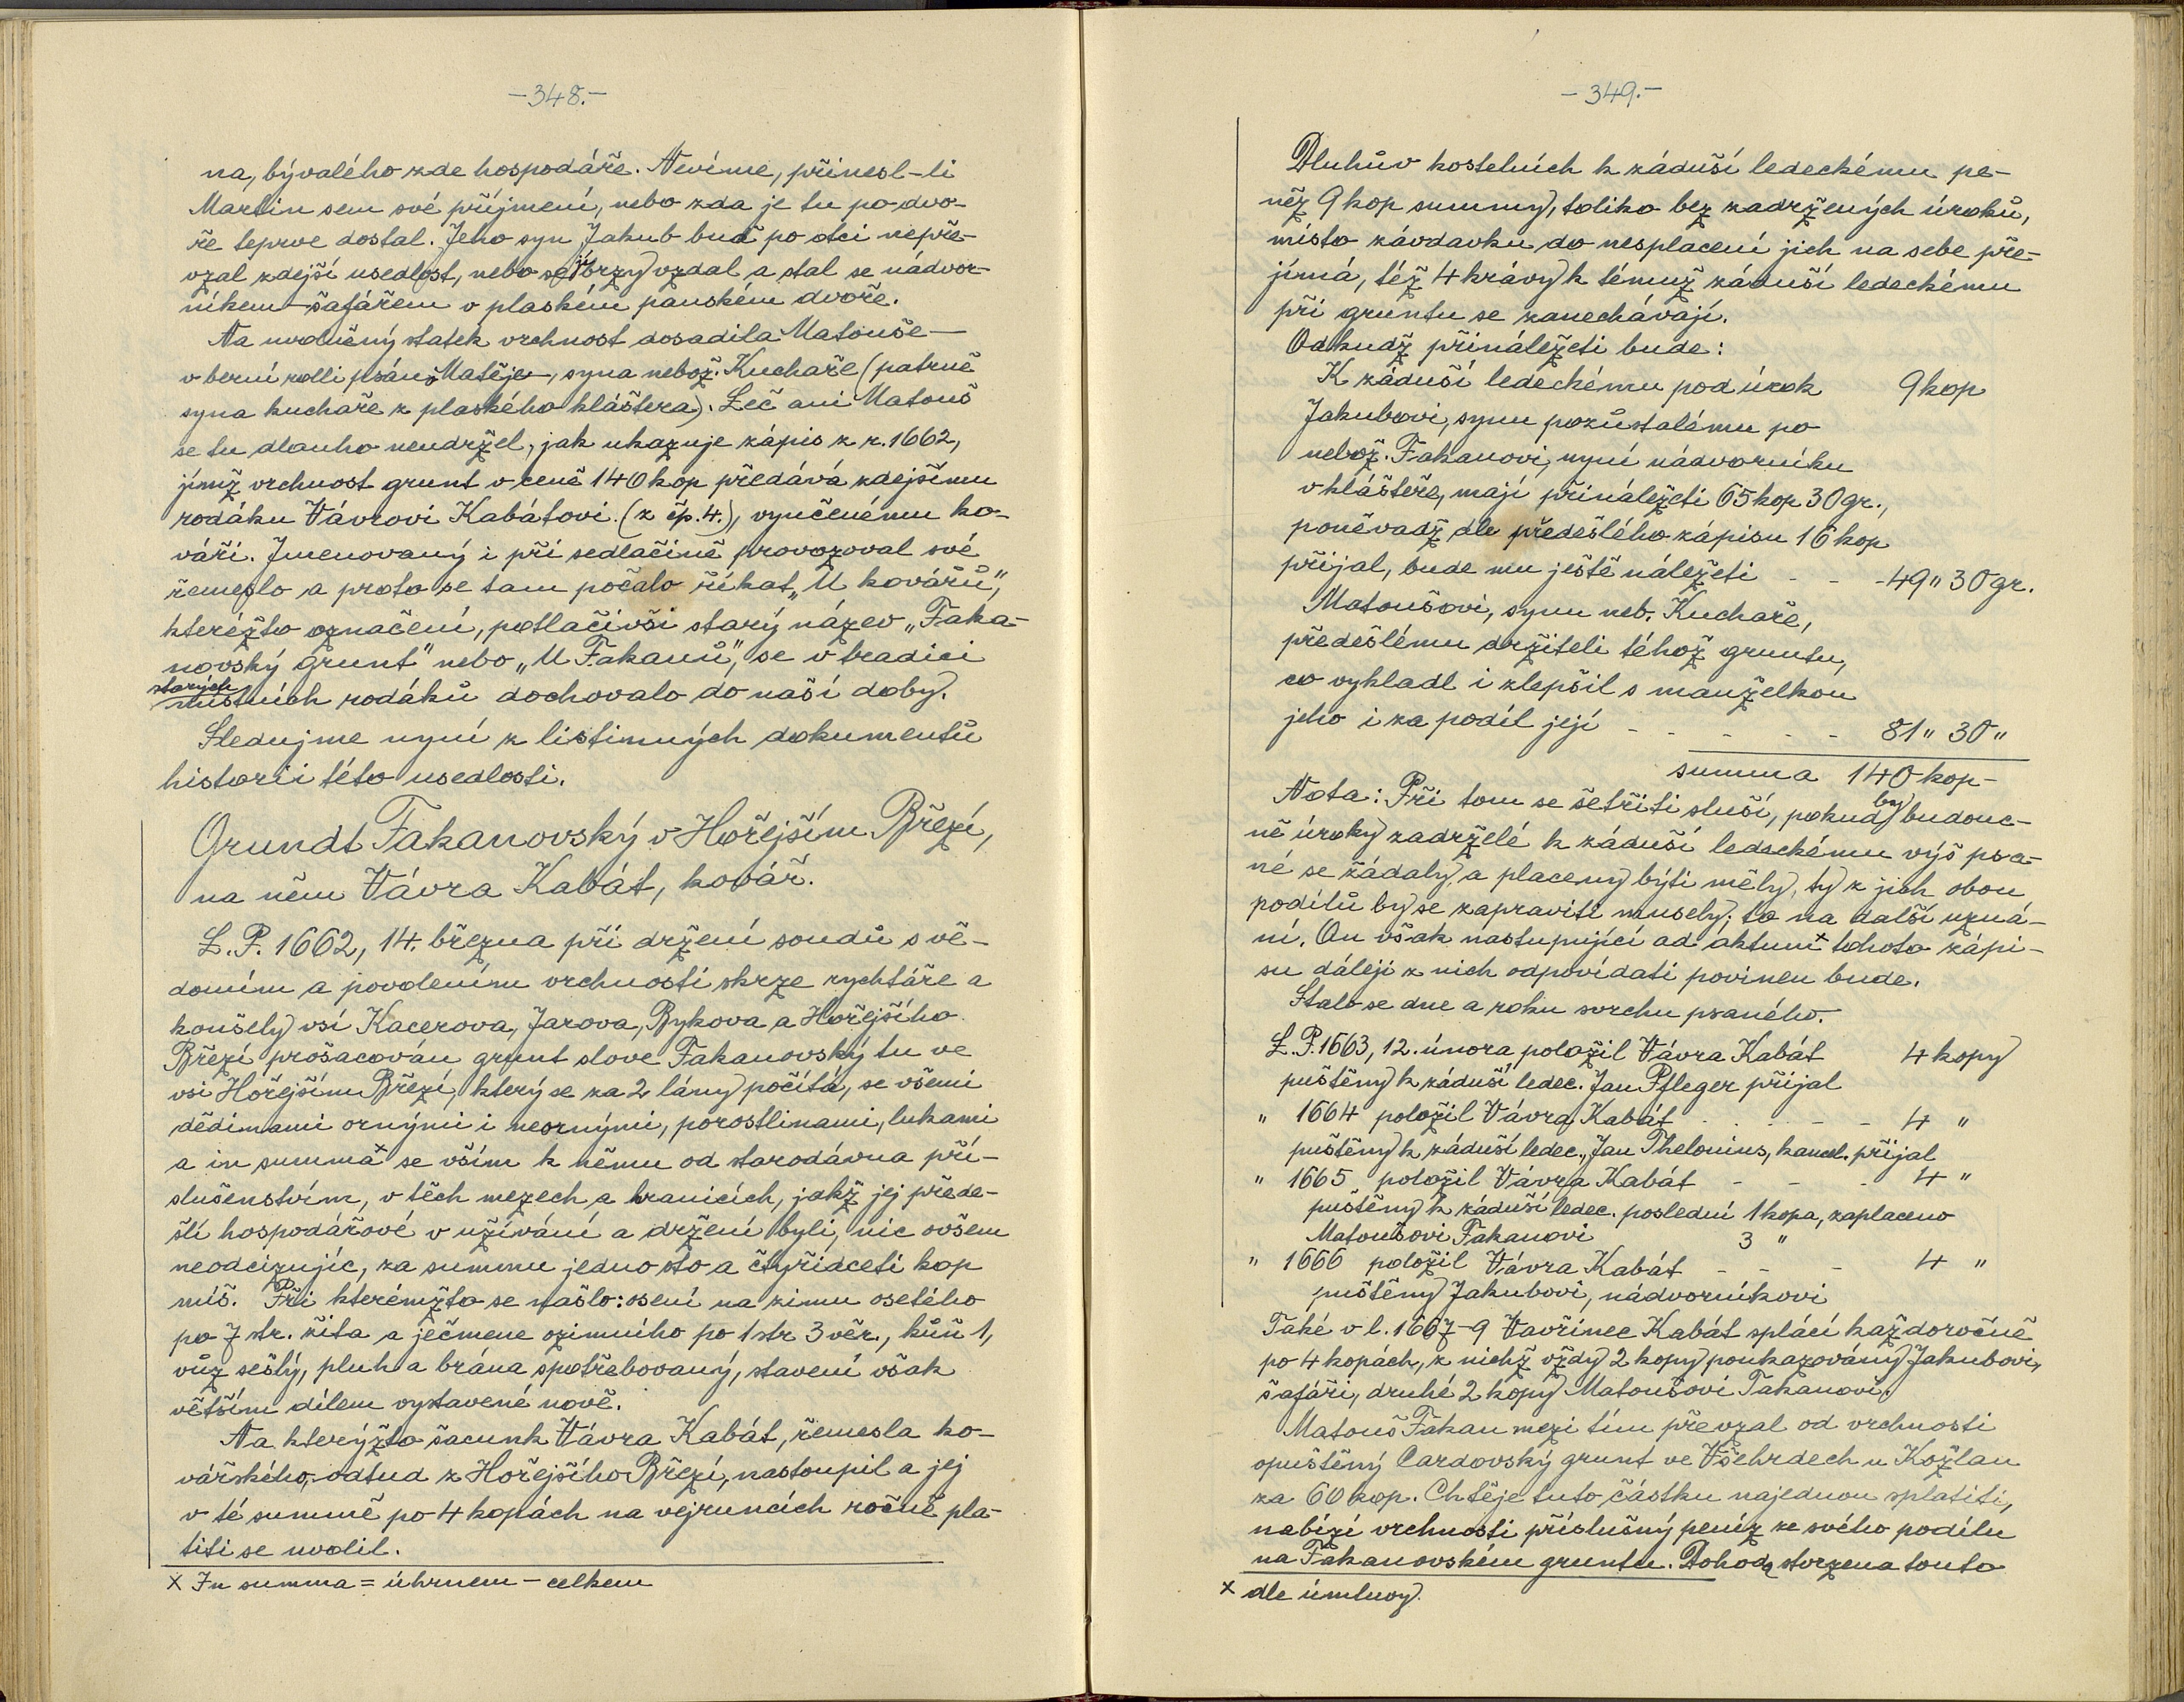 -348.-
na, bývalého zde hospodáře. Nevíme, přinesl-li
Martin sem své příjmení, nebo zda je tu po dvo-
ře teprve dostal. Jeho syn Jakub buď po otci nepře-
vzal zdejší usedlost, nebo se jí brzy vzdal a stal se nádvor-
níkem-šafářem v plaském panském dvoře.
Na uvolněný statek vrchnost dosadila Matouše-
v berní rolli psáno Matěje-, syna nebož. Kuchaře (patrně
syna kuchaře z plaského kláštera). Leč ani Matouš
se tu dlouho neudržel, jak ukazuje zápis z r. 1662,
jímž vrchnost grunt v ceně 140 kop předává zdejšímu
rodáku Vávrovi Kabátovi (z čp. 4.), vyučenému ko-
váři. Jmenovaný i při sedlačině provozoval své
řemeslo a proto se tam počalo říkat „U kovářů",
kteréžto označení, potlačivši starý název „Faka-
novský grunt" nebo „U Fakanů", se v tradici
starých
místních rodáků dochovalo do naší doby.
Sledujme nyní z listinných dokumentů
historii této usedlosti.
Grundt Fakanovský v Hořejším Březí,
na něm Vávra Kabát, kovář.
L.P. 1662, 14. března při držení soudů s vě-
domím a povolením vrchnosti skrze rychtáře a
konšely vsí Kacerova, Jarova, Bykova a Hořejšího
Březí prošacován grunt slove Fakanovský tu ve
vsi Hořejším Březí, který se za 2 lány počítá, se všemi
dědinami ornými i neornými, porostlinami, lukami
a in summa x se vším k němu od starodávna pří-
slušenstvím, v těch mezech a hranicích, jakž jej přede-
šlí hospodářové v užívání a držení byli, nic ovšem
neodcizujíc, za summu jedno sto a čtyřidceti kop
míš. Při kterémžto se našlo: osení na zimu osetého
po 7 str. žita a ječmene ozimního po 1 str 3 věr., kůň 1,
vůz sešlý, pluh a brána spotřebovaný, stavení však
větším dílem vystavené nově.
Na kterýžto šacunk Vávra Kabát, řemesla ko-
vářského, odtud z Hořejšího Březí, nastoupil a jej
v té summě po 4 kopách na vejruncích ročně pla-
titi se uvolil.
x In summa = úhrnem - celkem
-349.-
Dluhův kostelních k záduší ledeckému pe-
něz 9 kop summy, toliko bez zadržených úroků,
místo závdavku do nesplacení jich na sebe pře-
jímá, též 4 krávy k témuž záduší ledeckému
při gruntu se zanechávají.
Odkudž přináležeti bude:
K záduší ledeckému pod úrok 9 kop
Jakubovi, synu pozůstalému po
nebož. Fakanovi, nyní nádvorníku
v klášteře, mají přináležeti 65 kop 30 gr.,
poněvadž dle předešlého zápisu 16 kop
přijal, bude mu ještě náležeti - - - 49 " 30 gr.
Matoušovi, synu neb. Kuchaře,
předešlému držiteli téhož gruntu,
co vykladl i zlepšil s manželkou
jeho i za podíl její - - - - - 81 " 30 "
summa 140 kop-
Nota: Při tom se šetřiti sluší, pokud by budouc-
ně úroky zadržělé k záduší ledeckému výš psa-
né se žádaly, a placeny býti měly, ty z jich obou
podílů by se zapraviti musely; to na další uzná-
ní. On však nastupující ad aktum x tohoto zápi-
su dáleji z nich odpovídati povinen bude.
Stalo se dne a roku svrchu psaného.
L.P. 1663, 12. února položil Vávra Kabát 4 kopy
puštěny k záduší ledec. Jan Pfleger přijal
" 1664 položil Vávra Kabát - - - - 4 "
puštěny k záduší ledec., Jan Thelonius, kancl. přijal
" 1665 položil Vávra Kabát - - - 4 "
puštěny k záduší ledec. poslední 1 kopa, zaplaceno
Matoušovi Fakanovi 3 "
" 1666 položil Vávra Kabát - - - 4 "
puštěny Jakubovi, nádvorníkovi
Také v l. 1667-9 Vavřinec Kabát splácí každoročně
po 4 kopách, z nichž vždy 2 kopy poukazovány Jakubovi,
šafáři, druhé 2 kopy Matoušovi Fakanovi.
Matouš Fakan mezi tím převzal od vrchnosti
opuštěný Cardovský grunt ve Všehrdech u Kožlan
za 60 kop. Chtěje tuto částku najednou splatiti,
nabízí vrchnosti příslušný peníz ze svého podílu
na Fakanovském gruntu. Dohoda stvrzena touto
x dle úmluvy.